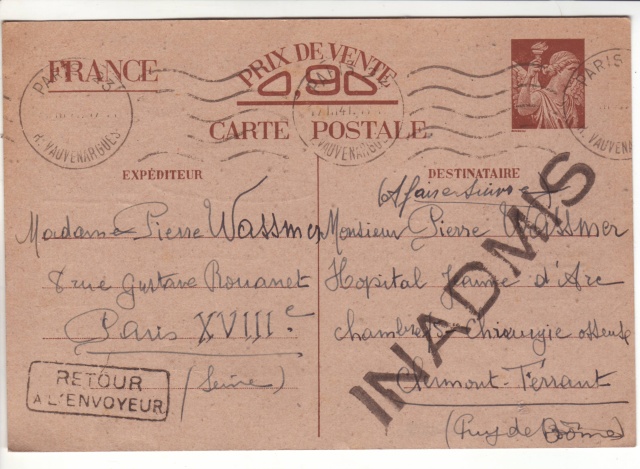 FRANCE
PRIX DE VENTE
0,90
CARTE POSTALE
PARIS
R. VAUVENARGUES
41
VAUVENARGUES
PARIS
R. VAUVENARGUES
EXPÉDITEUR
Madame Pierre Wassmer
8 rue Gustave Rouanet
Paris XVIIIe
(Seine)
RETOUR
A L'ENVOYEUR
DESTINATAIRE
(A faire suivre)
Monsieur Pierre Wassmer
Hopital Jeanne d'Arc
Chambre Chirurgie osseuse
Clermont-Ferrant
(Puy de Dôme)
INADMIS